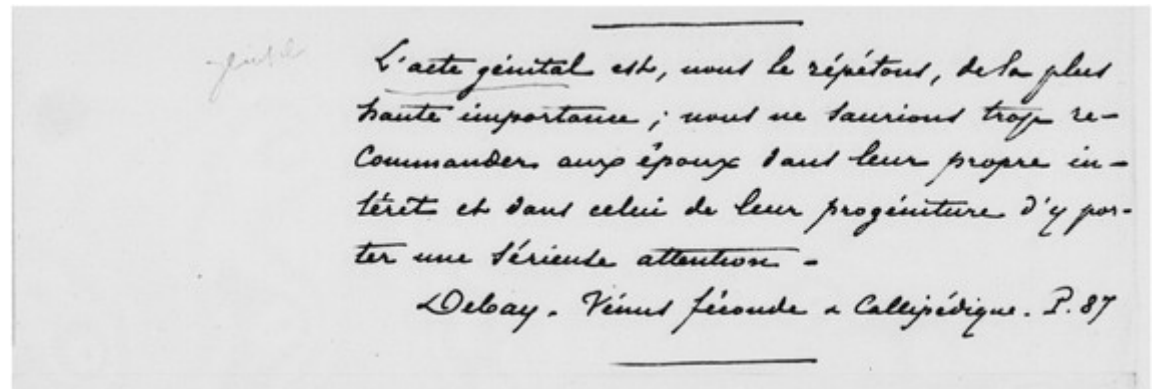 génital
L'acte génital est, nous le répétons, de la plus
haute importance ; nous ne saurions trop re-
commander aux époux dans leur propre in-
térêt et dans celui de leur progéniture d'y por-
ter une sérieuse attention -
Debay. Vénus féconde & Callipédique. P. 87